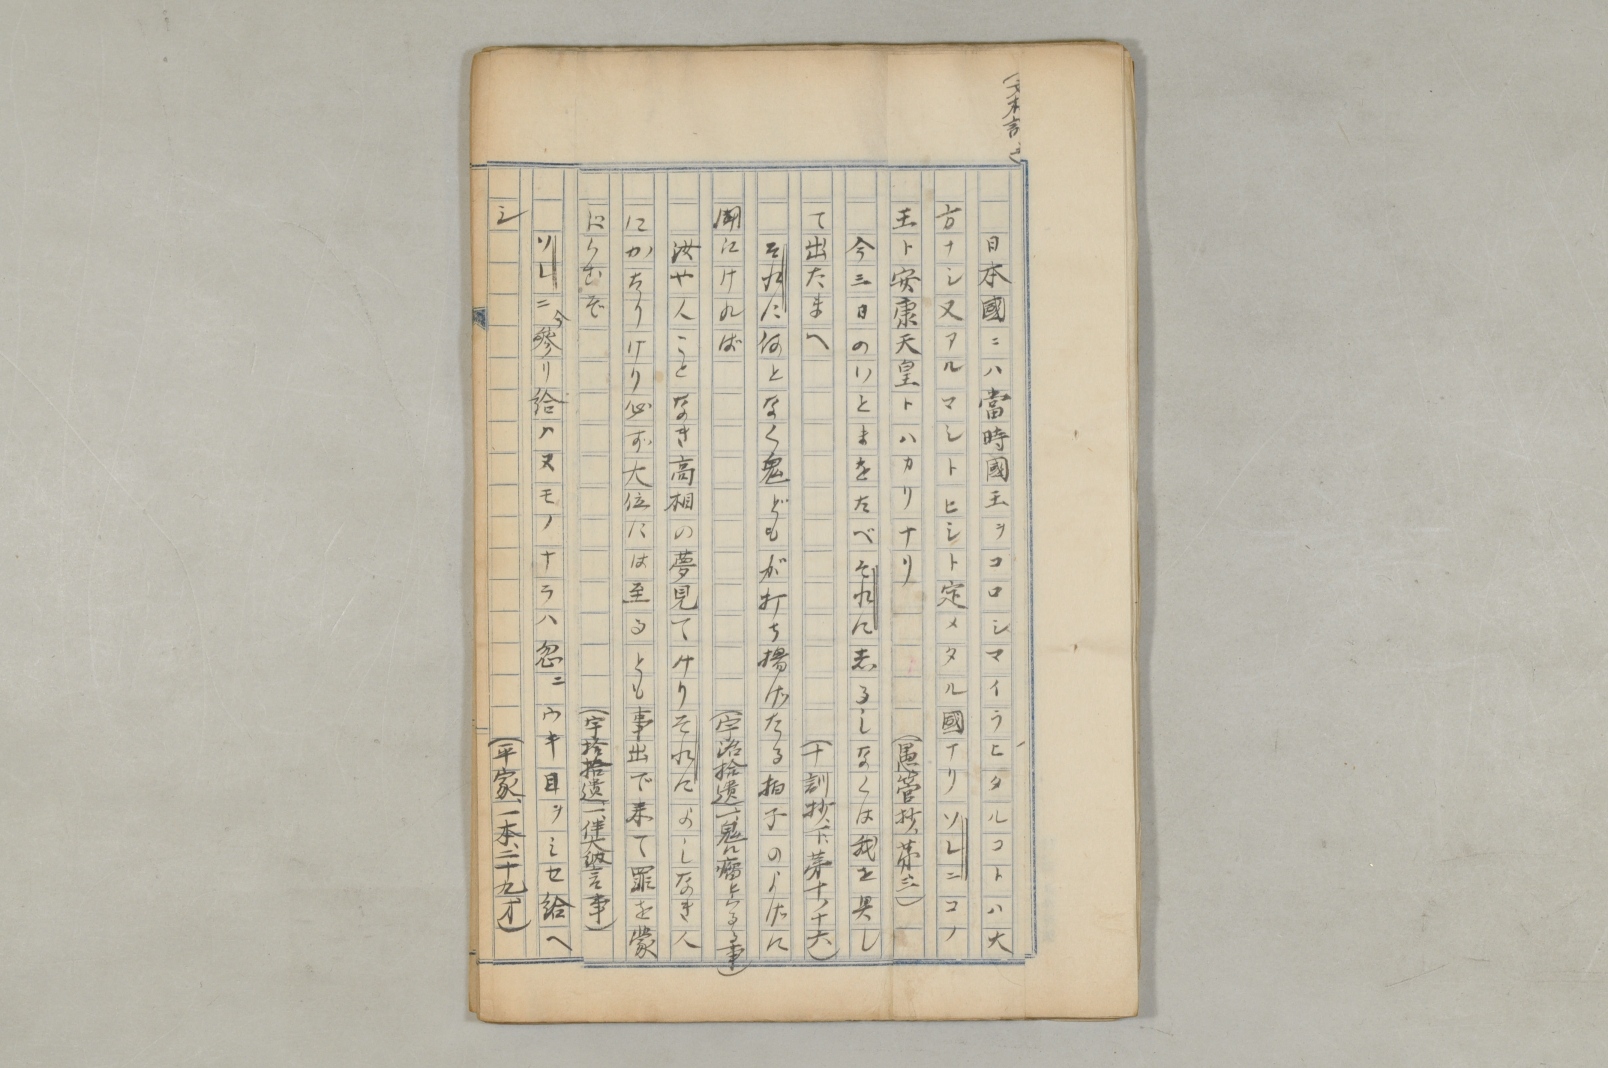 日本國ニハ當時國王ヲコロシマイラヒタルコトハ大
方ナシ又アルマシトヒシト定メタル國ナリソレニコノ
王ト安康天皇トハカリナリ　(愚管抄、第三)
今三日のいとまをたべそれにしるしなくは我を具し
て出たまへ　(十訓抄、下、第十ノ十六)
それに何となく鬼どもが打ち揚げたる拍子のよげに
聞にければ　(宇治拾遺一、鬼に癭とらるゝ事)
汝や人ことなき高相の夢見てけりそれによしなき人
にかたりけり必ず大位には至るとも事出で来て罪を蒙
にらむぞ　(宇治拾遺、一、伴大納言事)
ソレニ今參リ給ハヌモノナラハ忽ニウキ目ヲミセ給ヘ
シ　(平家、一本、二十九オ)